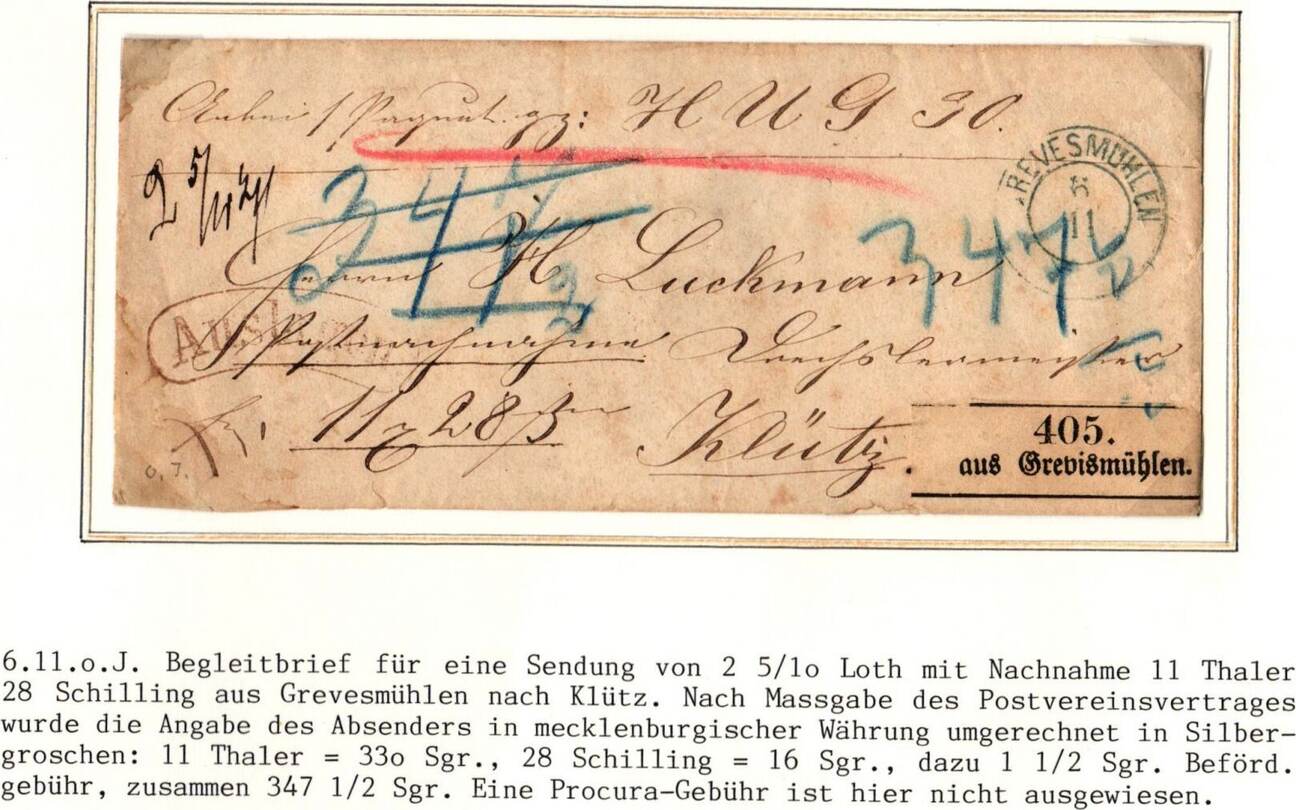 Anbei 1 Paquet. gz: H U G 30.
GREVESMÜHLEN
6
11
2 5/10
34 1/2
Herrn H Luckmann
347 1/2
Ausl
Postnachnahme Drechslermeister
11 28 ß Klütz.
405.
aus Grevismühlen.
o. J.
6.11.o.J. Begleitbrief für eine Sendung von 2 5/1o Loth mit Nachnahme 11 Thaler
28 Schilling aus Grevesmühlen nach Klütz. Nach Massgabe des Postvereinsvertrages
wurde die Angabe des Absenders in mecklenburgischer Währung umgerechnet in Silber-
groschen: 11 Thaler = 33o Sgr., 28 Schilling = 16 Sgr., dazu 1 1/2 Sgr. Beförd.
gebühr, zusammen 347 1/2 Sgr. Eine Procura-Gebühr ist hier nicht ausgewiesen.